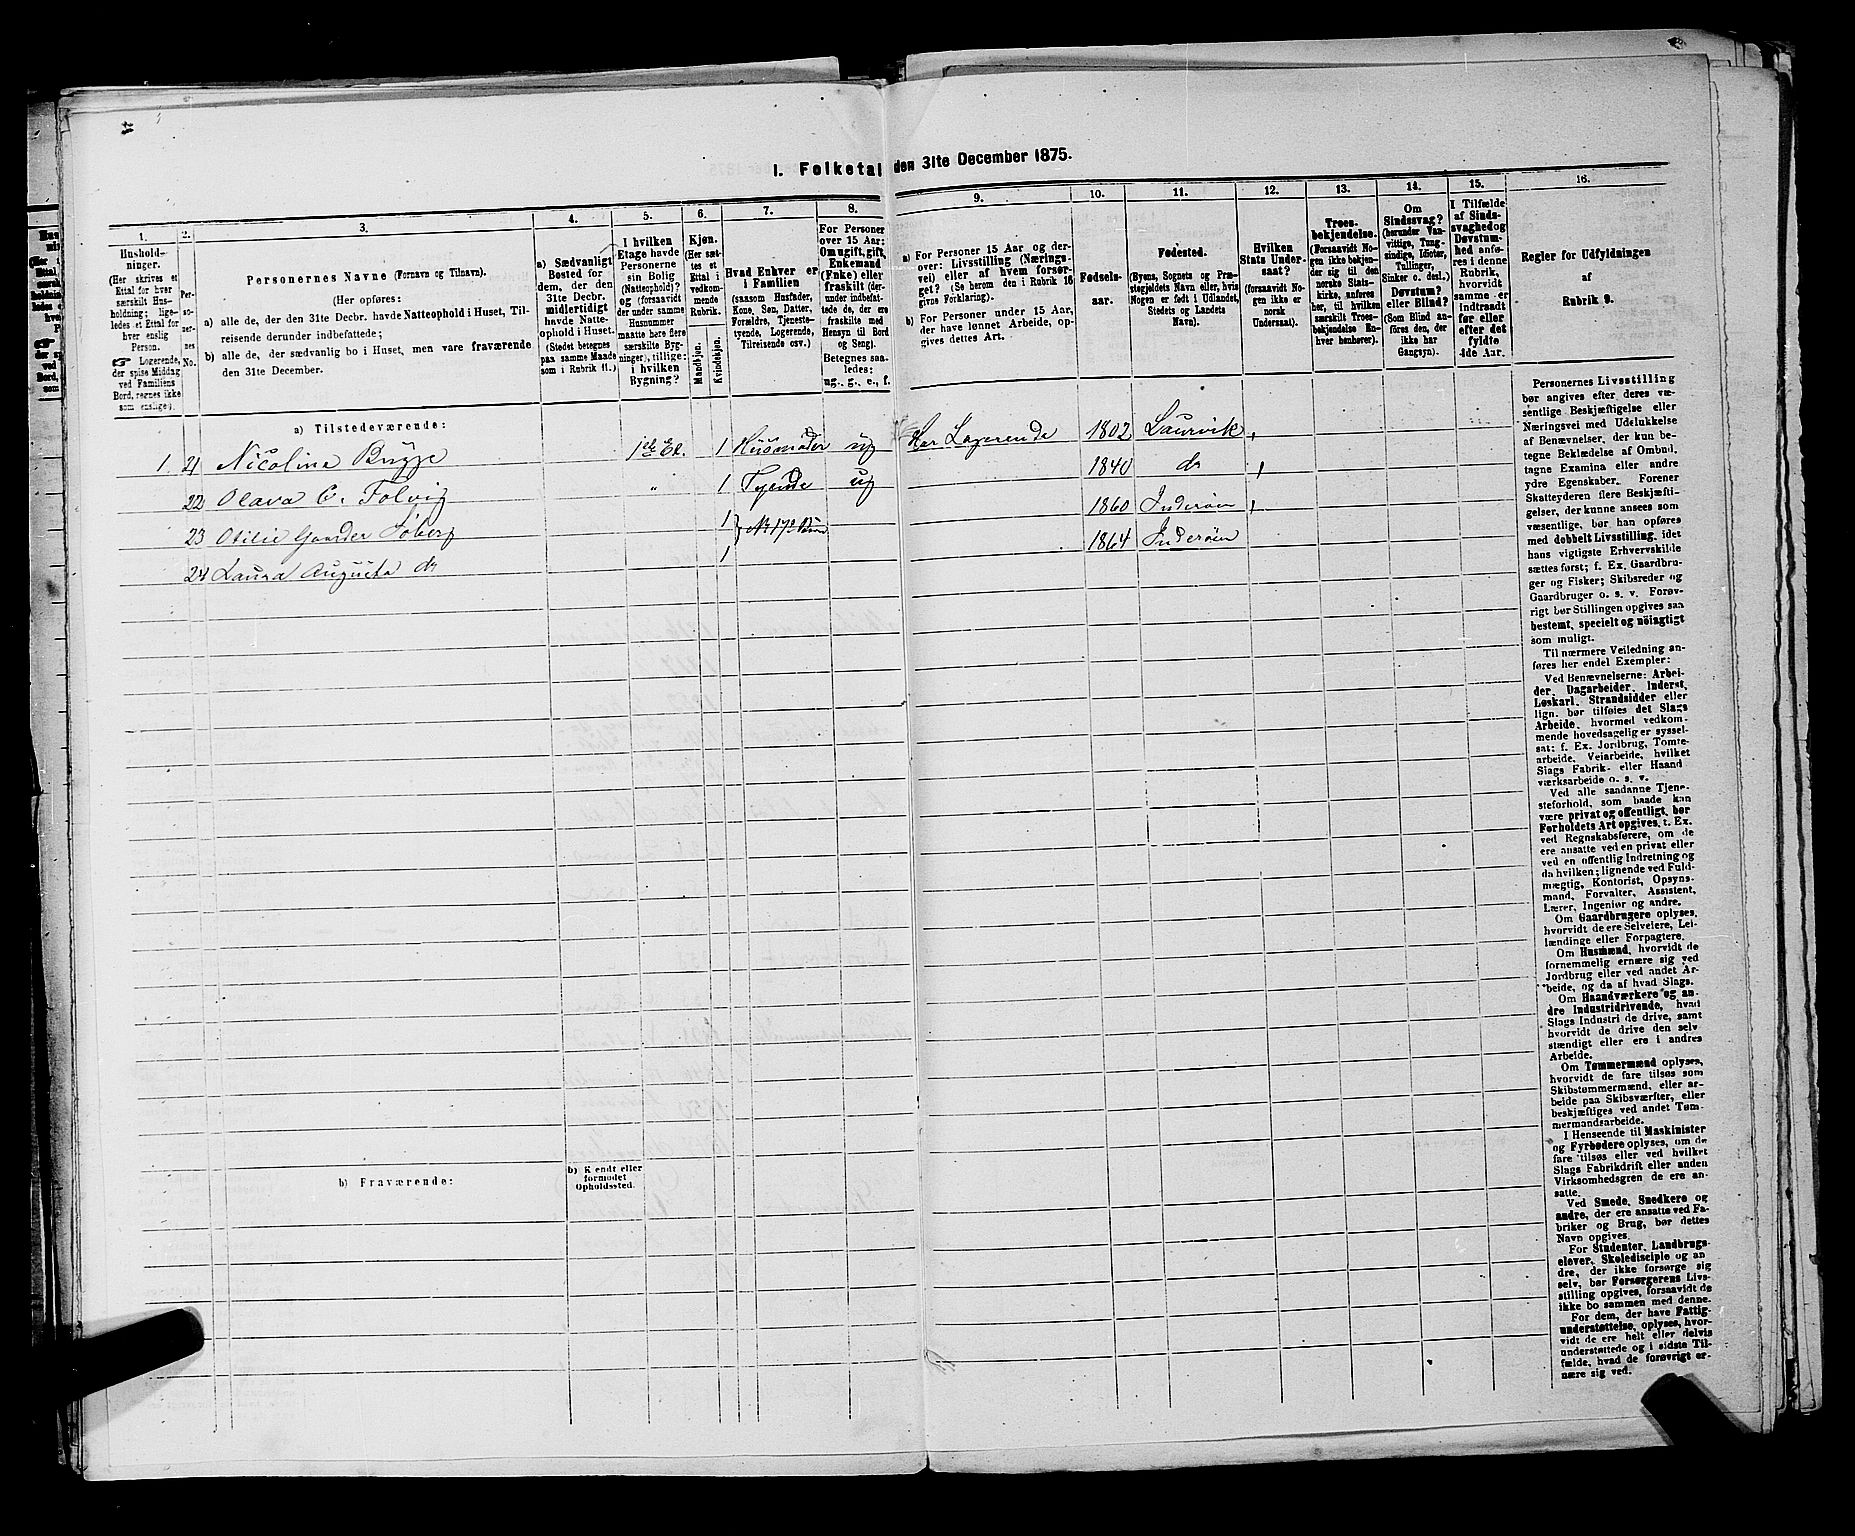 I. Folketal den 31te December 1875.
1.
Hushold-
ninger.
(Her skrives et
Ettal for hver
særskilt Hus-
holdning; lige-
ledes et Ettal for
hver enslig
Person.
☞ Logerende,
der spise Middag
ved Familiens
Bord, regnes ikke
som enslige).
2.
Per-
so-
ner-
nes
No.
3.
Personernes Navne (Fornavn og Tilnavn).
(Her opføres:
a) alle de, der den 31te Decbr. havde Natteophold i Huset, Til-
reisende derunder indbefattede;
b) alle de, der sædvanlig bo i Huset, men vare fraværende
den 31te December.
4.
a) Sædvanligt
Bosted for
dem, der den
31te Decbr.
midlertidigt
havde Natte-
ophold i Huset.
(Stedet betegnes
paa samme Maade
som i Rubrik 11.)
5.
I hvilken
Etage havde
Personerne
sin Bolig
(Natteophold)?
og (forsaavidt
der under samme
Husnummer
maatte høre flere
særskilte Byg-
ninger), tillige:
i hvilken
Bygning?
6.
Kjøn.
(Her sæt-
tes et
Ettal i
vedkom-
mende
Rubrik.
Mandkjøn.
Kvindekjøn.
7.
Hvad Enhver er
i Familien
(saasom Husfader,
Kone, Søn, Datter,
Forældre, Tjeneste-
tyende, Logerende,
Tilreisende osv.)
8.
For Personer
over 15 Aar:
Om ugift, gift,
Enkemand
(Enke) eller
fraskilt (der-
under indbefat-
tede de, der ere
fraskilte med
Hensyn til Bord
og Seng).
Betegnes saa-
ledes:
ug., g., e., f.
9.
a) For Personer 15 Aar og der-
over: Livsstilling (Nærings-
vei) eller af hvem forsør-
get? (Se herom den i Rubrik 16
givne Forklaring).
b) For Personer under 15 Aar,
der have lønnet Arbeide, op-
gives dettes Art.
10.
Fødsels-
aar.
11.
Fødested.
(Byens, Sognets og Præ-
stegjeldets Navn eller, hvis
Nogen er født i Udlandet,
Stedets og Landets
Navn).
12.
Hvilken
Stats Under-
saat?
(forsaavidt No-
gen ikke er
norsk
Undersaat).
13.
Troes-
bekjendelse.
(Forsaavidt No-
gen ikke bekjen-
der sig til den
norske Stats-
kirke, anføres
her, til hvilken
særskilt Troes-
bekjendelse En-
hver henhører).
14.
Om
Sindssvag?
(herunder Van-
vittige, Tung-
sindige, Idioter,
Tullinger,
Sinker o. desl.)
Døvstum?
eller Blind?
(Som Blind an-
føres den, der
ikke har
Gangsyn).
15.
I Tilfælde
af Sinds-
svaghed og
Døvstum-
hed anfø-
res i denne
Rubrik,
hvorvidt
samme er
indtraadt
før eller
efter det
fyldte
4de Aar.
16.
Regler for Udfyldningen
af
Rubrik 9.
a) Tilstedeværende:
1. 21 Nicolina Brygge 1ste Et. 1 Husmoder ug Har Logerende 1802 Laurvik
22 Olava C. Folvig " 1 Tyende ug 1840 do
23 Otilie Gonder Søberg 1 1860 Inderøen
24 Laura Augusta do 1 1864 Inderøen
b) Fraværende:
b) Kjendt eller
formodet
Opholdssted.
Personernes Livsstilling
bør angives efter deres væ-
sentlige Beskjæftigelse eller
Næringsvei med Udelukkelse
af Benævnelser, der kun be-
tegne Beklædelse af Ombud,
tagne Examina eller andre
ydre Egenskaber. Forener
Skatteyderen flere Beskjæfti-
gelser, der kunne ansees som
væsentlige, bør han opføres
med dobbelt Livsstilling, idet
hans vigtigste Erhvervskilde
sættes først; f. Ex. Gaardbru-
ger og Fisker; Skibsreder og
Gaardbruger o. s. v. Forøv-
rigt bør Stillingen opgives saa
bestemt, specielt og nøiagtigt
som muligt.
Til nærmere Veiledning an-
føres her endel Exempler:
Ved Benævnelserne: Arbei-
der, Dagarbeider, Inderst,
Løskarl, Strandsidder eller
lign. bør tilføies det Slags
Arbeide, hvormed vedkom-
mende hovedsagelig er syssel-
sat; f. Ex. Jordbrug, Tomte-
arbeide, Veiarbeide, hvilket
Slags Fabrik- eller Haand
værksarbeide o. s. v.
Ved alle saadanne Tjene-
steforhold, som baade kan
være privat og offentligt, bør
Forholdets Art opgives, t. Ex.
ved Regnskabsførere, om de
ere ansatte ved en privat eller
ved en offentlig Indretning og
da hvilken; lignende ved Fuld-
mægtig, Kontorist, Opsyns-
mand, Forvalter, Assistent,
Lærer, Ingeniør og andre.
Om Gaardbrugere oplyses,
hvorvidt de ere Selveiere, Lei-
lændinge eller Forpagtere.
Om Husmænd, hvorvidt de
fornemmelig ernære sig ved
Jordbrug eller ved andet Ar-
beide, og da af hvad Slags.
Om Haandværkere og an-
dre Industridrivende, hvad
Slags Industri de drive, samt
hvorvidt de drive den selv
stændigt eller ere i andres
Arbeide.
Om Tømmermænd oplyses,
hvorvidt de fare tilsøs som
Skibstømmermænd, eller ar-
beide paa Skibsværfter, eller
beskjæftiges ved andet Tøm-
mermandsarbeide.
I Henseende til Maskinister
og Fyrbødere oplyses, om de
fare tilsøs eller ved hvilket
Slags Fabrikdrift eller anden
Virksomhedsgren de ere an-
satte.
Ved Smede, Snedkere og
andre, der ere ansatte ved Fa-
briker og Brug, bør dettes
Navn opgives.
For Studenter, Landbrugs-
elever, Skoledisciple og an
dre, der ikke forsørge sig
selv, bør Forsørgerens Livs-
stilling opgives, forsaavidt de
ikke bo sammen med denne.
For dem, der have Fattig-
understøttelse, oplyses, hvor-
vidt de ere helt eller delvis
understøttede og i sidste Til-
fælde, hvad de forøvrigt er-
nære sig ved.